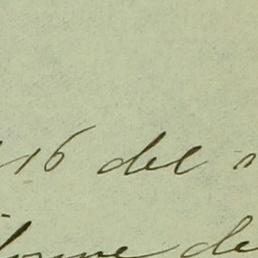 16 del
forme de